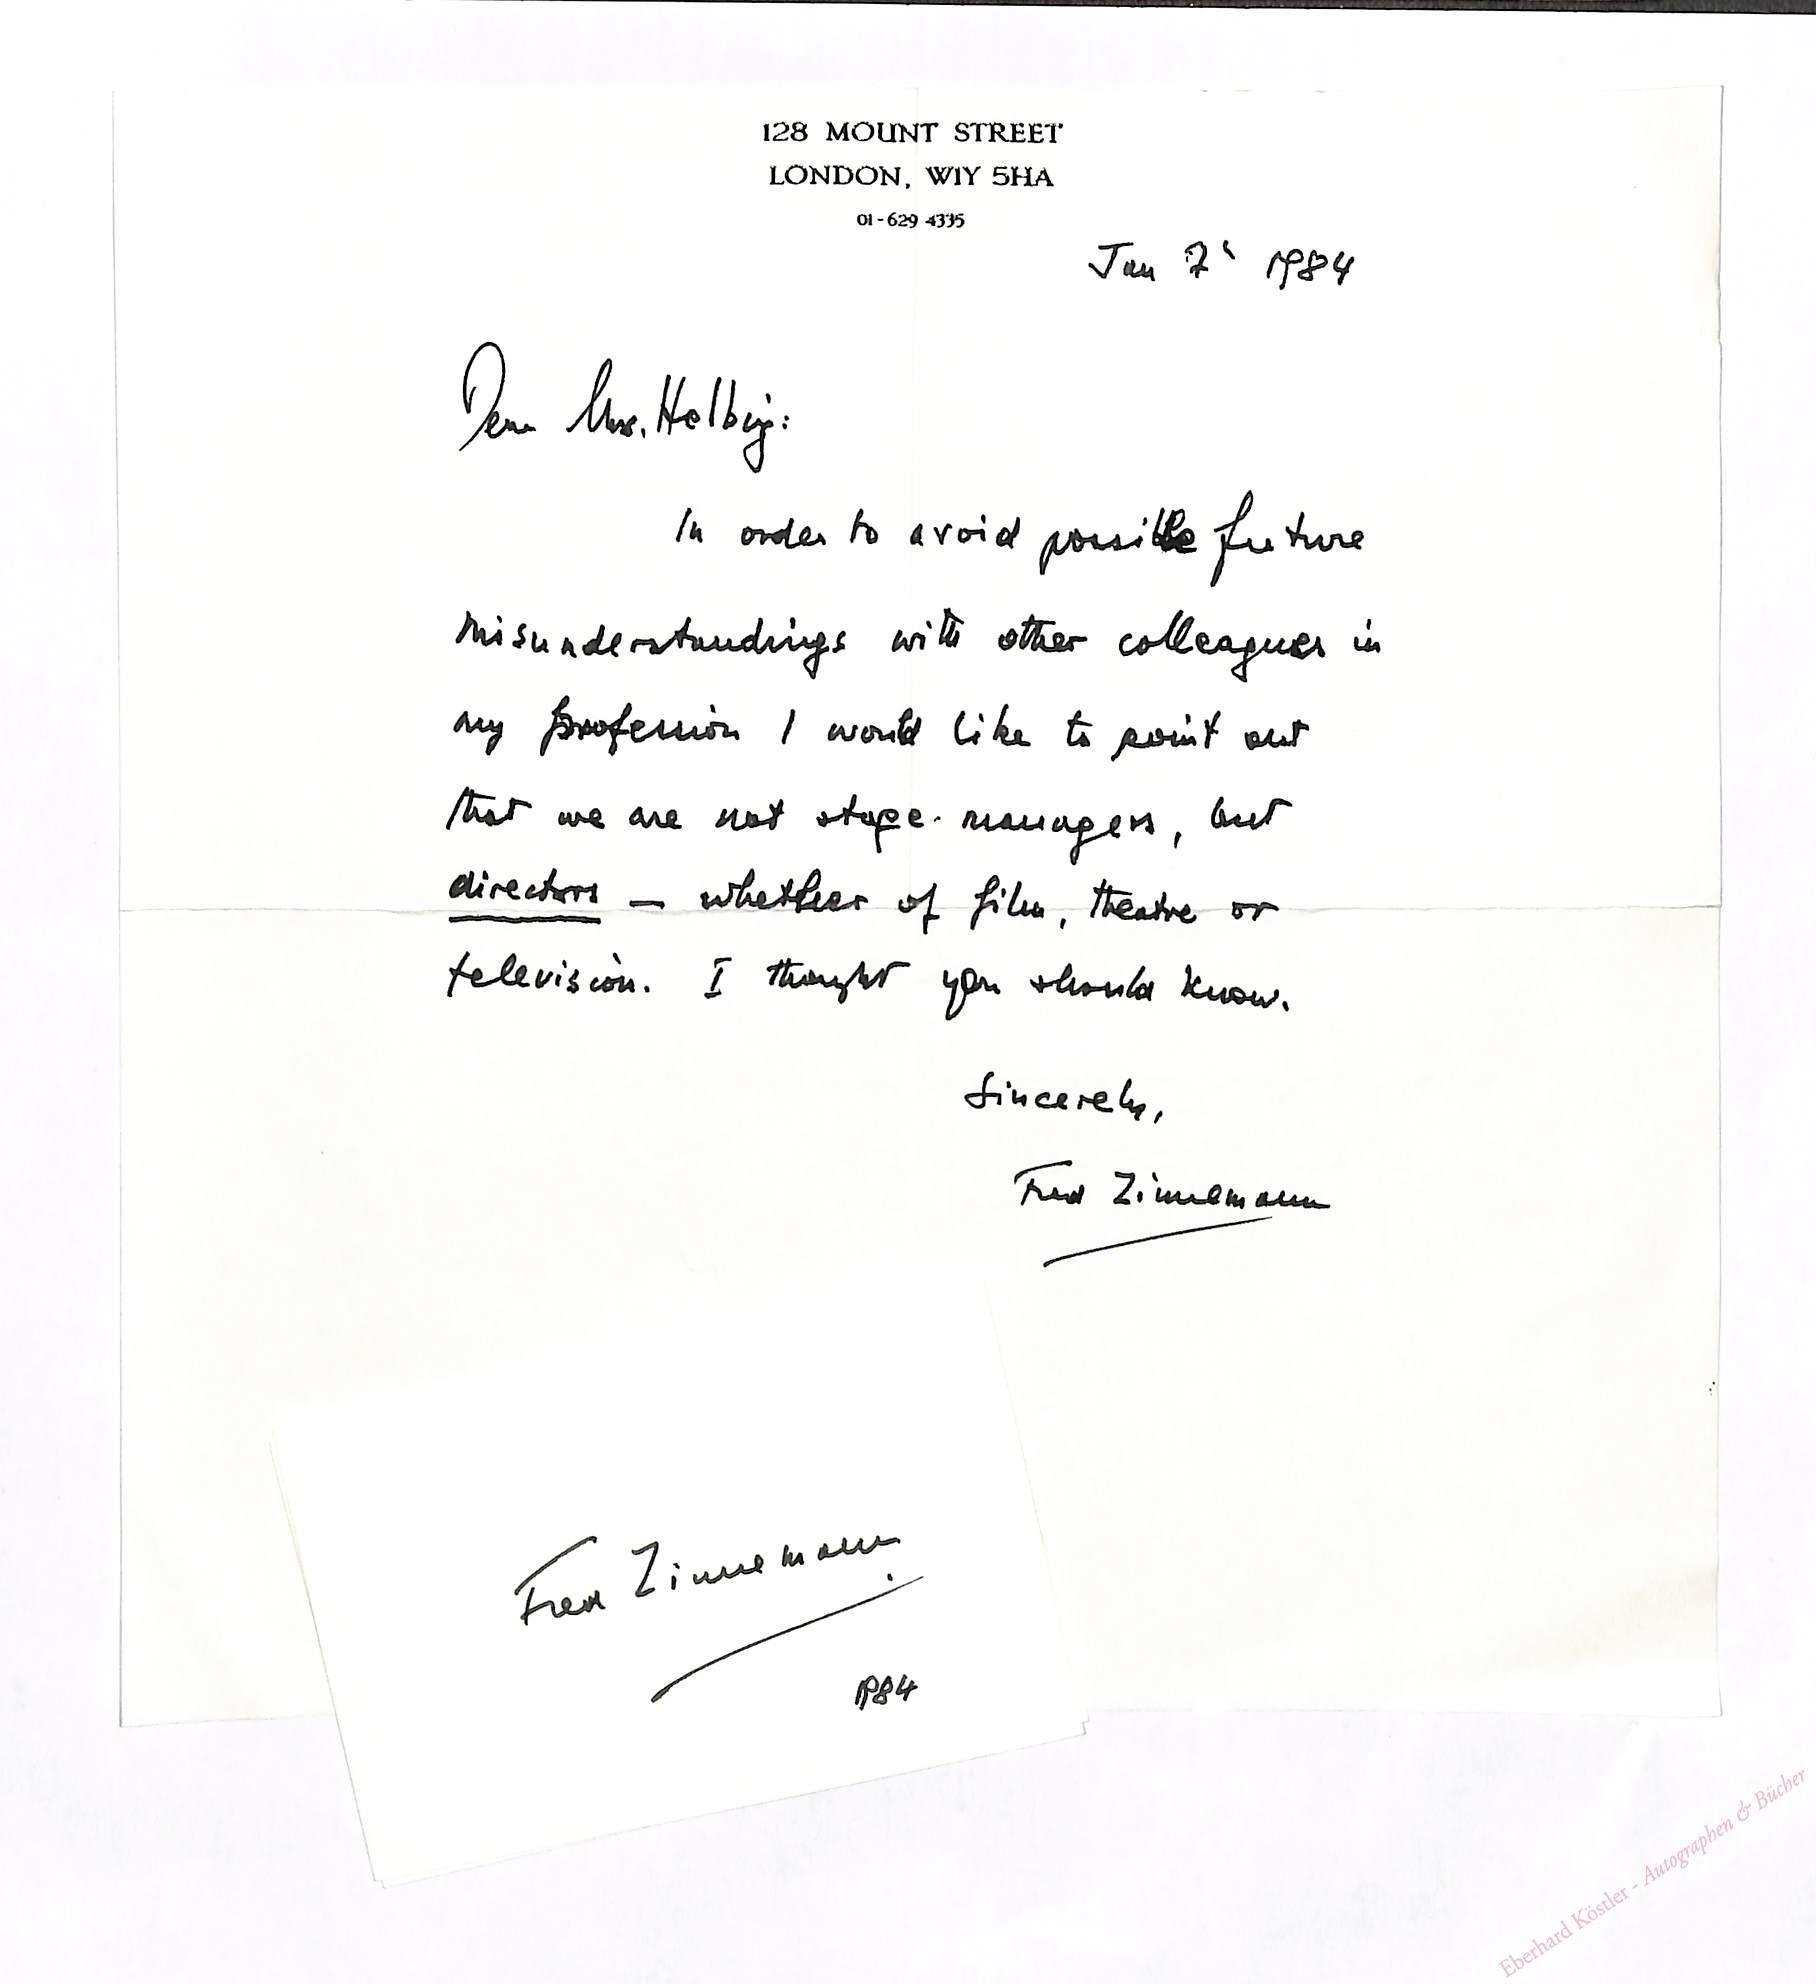 128 MOUNT STREET
LONDON, W1Y 5HA
01-629 4335
Jan 7' 1984
Dear Mrs. Helbig:
In order to avoid possible future
misunderstandings with other colleagues in
my profession I would like to point out
that we are not stage-managers, but
directors — whether of film, theatre or
television. I thought you should know.
Sincerely,
Fred Zinnemann
Fred Zinnemann.
1984
Eberhard Köstler - Autographen & Bücher